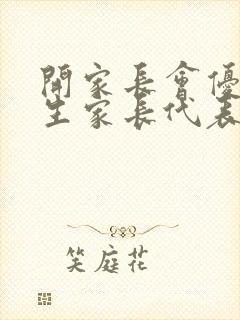 開家長會優
生家長代表
笑庭花